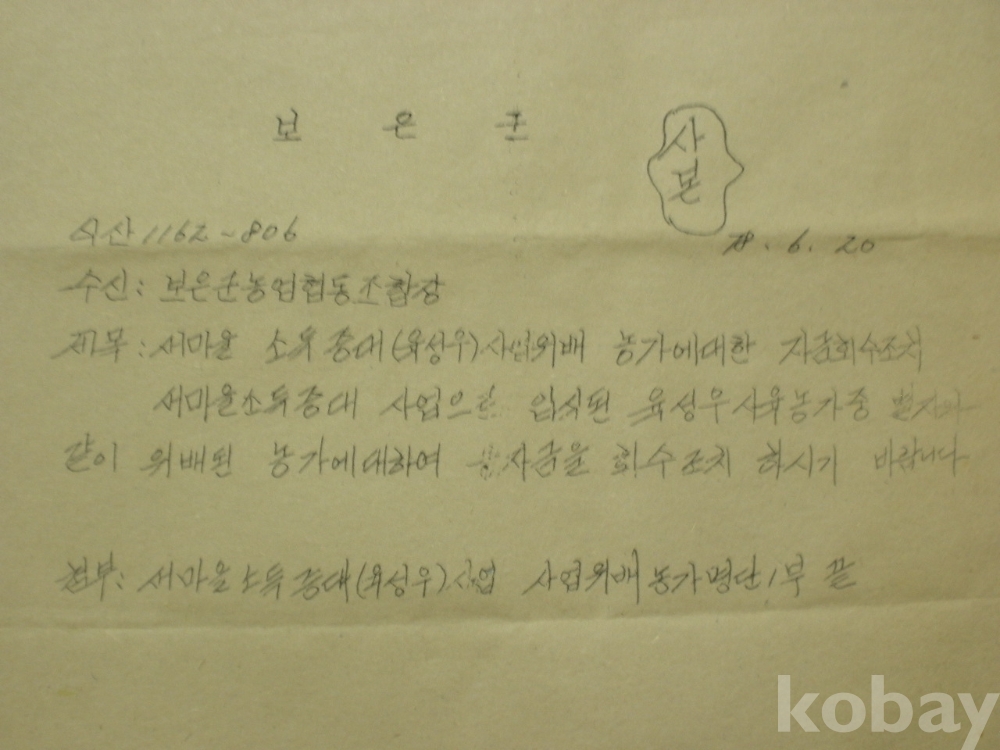 보 은 군
사본
식산 1162~806
78. 6. 20
수신: 보은군농업협동조합장
제목: 새마을 소득증대(육성우)사업위배 농가에대한 자금회수조치
새마을소득증대 사업으로 입식된 육성우사육농가중 별지와
같이 위배된 농가에대하여 융자금을 회수조치 하시기 바랍니다
첨부: 새마을소득증대(육성우)사업 사업위배농가명단1부 끝
kobay